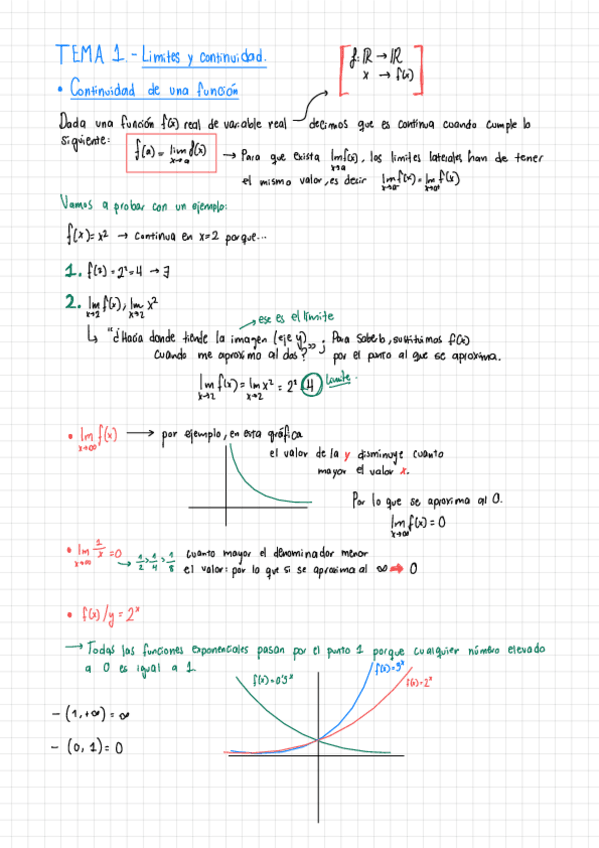 TEMA 1.- Limites y continuidad.
f: ℝ → ℝ
x → f(x)
• Continuidad de una función
Dada una función f(x) real de variable real → decimos que es continua cuando cumple lo
siguiente: f(a) = lim x→a f(x) → Para que exista lim x→a f(x), los limites laterales han de tener
el mismo valor, es decir lim x→a⁻ f(x) = lim x→a⁺ f(x)
Vamos a probar con un ejemplo:
f(x) = x² → continua en x=2 porque...
1. f(2) = 2² = 4 → ∃
2. lim x→2 f(x), lim x→2 x²
→ ese es el límite
↳ "¿Hacia donde tiende la imagen (eje y)
cuando me aproximo al dos?" ; Para saberlo, sustituimos f(x)
por el punto al que se aproxima.
lim x→2 f(x) = lim x→2 x² = 2² 4 limite.
• lim x→∞ f(x) → por ejemplo, en esta gráfica
el valor de la y disminuye cuanto
mayor el valor x.
Por lo que se aproxima al 0.
lim x→∞ f(x) = 0
• lim x→∞ 1/x = 0 → 1/2 > 1/4 > 1/8 cuanto mayor el denominador menor
el valor: por lo que si se aproxima al ∞ → 0
• f(x) / y = 2ˣ
→ Todas las funciones exponenciales pasan por el punto 1 porque cualquier número elevado
a 0 es igual a 1.
f(x)=0'5ˣ
f(x)=2ˣ
- (1, +∞) = ∞
- (0, 1) = 0